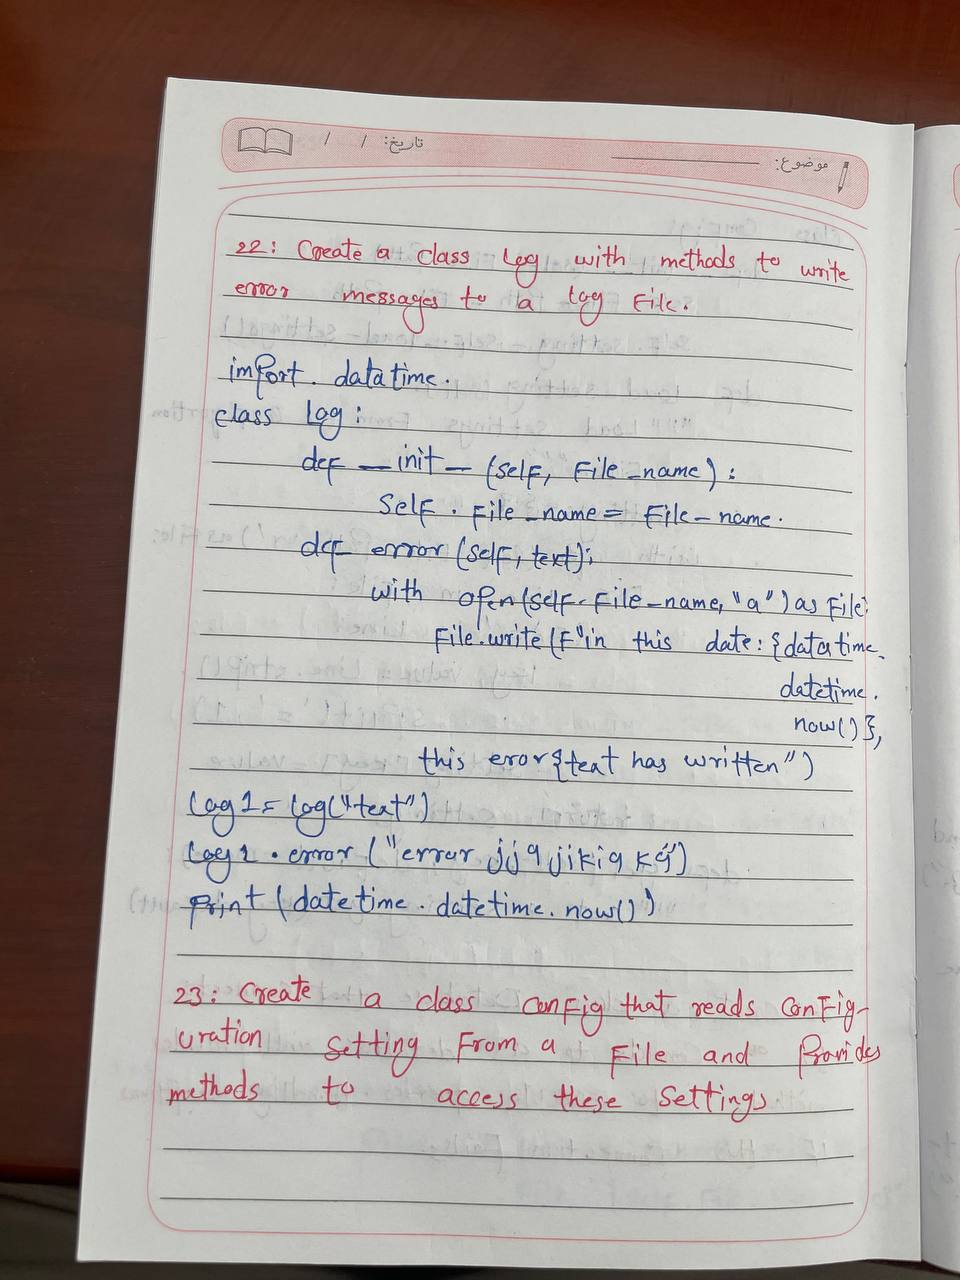 تاریخ: / /
موضوع:
22: Create a class Log with methods to write
error messages to a log File.
import. datatime.
class Log:
def __init_ (self, File_name):
Self. File_name = File_name.
def error (self, text):
with open(self.File_name, "a") as File:
File.write(F"in this date: {datatime.
datetime.
now()},
this eror{text has written")
Log1= Log("text")
Log1.error ("error jjq jikiq kq")
print (datetime.datetime.now())
23: Create a class config that reads Config-
uration setting From a File and Provides
methods to access these settings